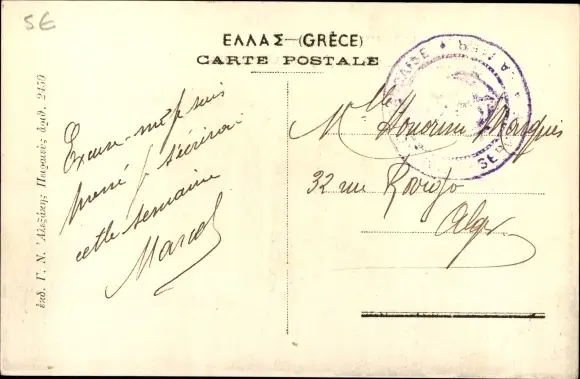 5E
ΕΛΛΑΣ—(GRÈCE)
CARTE POSTALE
Excuse-moi je suis
pressé je t'écrirai
cette semaine
Marcel
Mlle Honorine
32 rue Rovigo
Alger
ἐκδ. Γ. Ν. Ἀλεξάκης Πειραιεύς ἀριθ. 2450